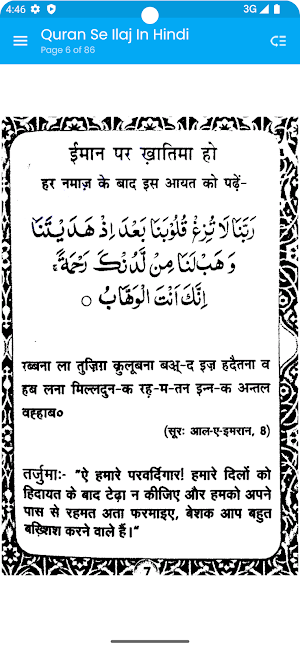 4:46
3G
Quran Se Ilaj In Hindi
Page 6 of 86
ईमान पर ख़ातिमा हो
हर नमाज़ के बाद इस आयत को पढ़ें-
رَبَّنَا لَا تُزِغْ قُلُوْبَنَا بَعْدَ اِذْ هَدَيْتَنَا
وَهَبْ لَنَا مِنْ لَّدُنْكَ رَحْمَةً ۚ
اِنَّكَ اَنْتَ الْوَهَّابُ ○
रब्बना ला तुज़िग़ क़ुलूबना बअ्-द इज़ हदैतना व
हब लना मिल्लदुन-क रह़-म-तन इन्न-क अन्तल
वह्हाब०
(सूरः आल-ए-इमरान, 8)
तर्जुमाः- “ऐ हमारे परवर्दिगार! हमारे दिलों को
हिदायत के बाद टेढ़ा न कीजिए और हमको अपने
पास से रहमत अता फरमाइए, बेशक आप बहुत
बख़्शिश करने वाले हैं।“
7